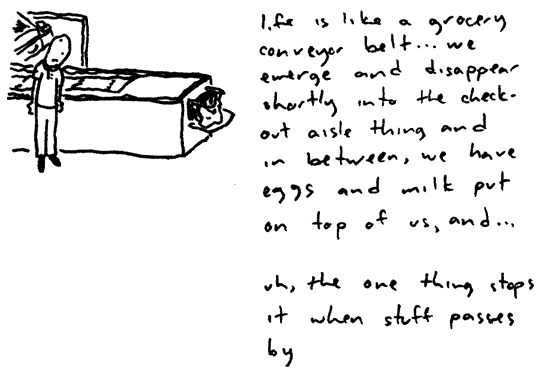 life is like a grocery
conveyor belt... we
emerge and disappear
shortly into the check-
out aisle thing and
in between, we have
eggs and milk put
on top of us, and...
uh, the one thing stops
it when stuff passes
by